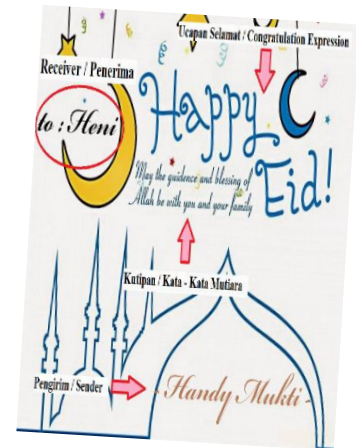 Ucapan Selamat / Congratulation Expression
Receiver / Penerima
to : Heni
Happy
Eid!
May the guidence and blessing of
Allah be with you and your family
Kutipan / Kata - Kata Mutiara
Pengirim / Sender
- Handy Mukti -